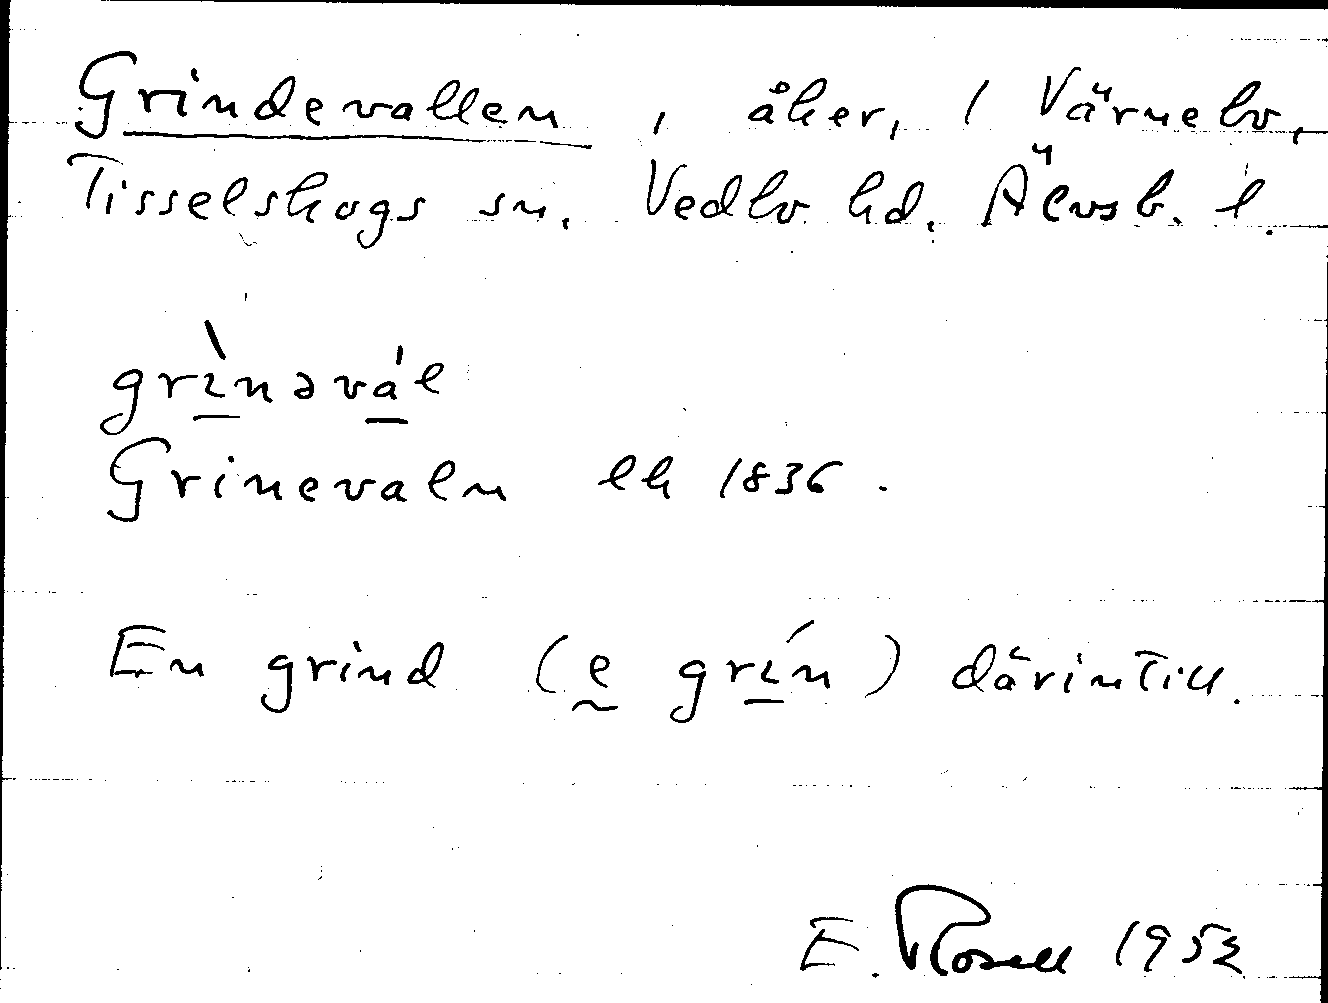 Grindevallen, åker, 1 Värnebo,
Tisselskogs sn. Vedbo hd. Älvsb. l.
grìnəvál
Grinevaln lh 1836.
En grind (e grín) därintill.
E. Rosell 1952